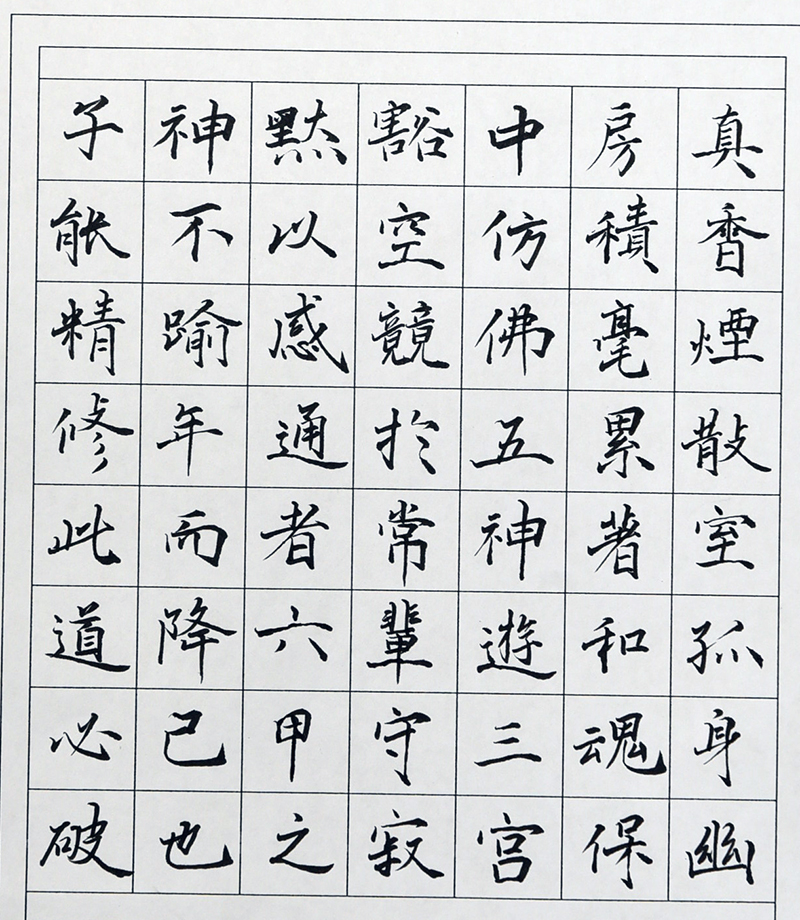 真香煙散室孤身幽
房積毫累著和魂保
中仿佛五神遊三宮
豁空競於常輩守寂
默以感通者六甲之
神不踰年而降己也
子能精修此道必破